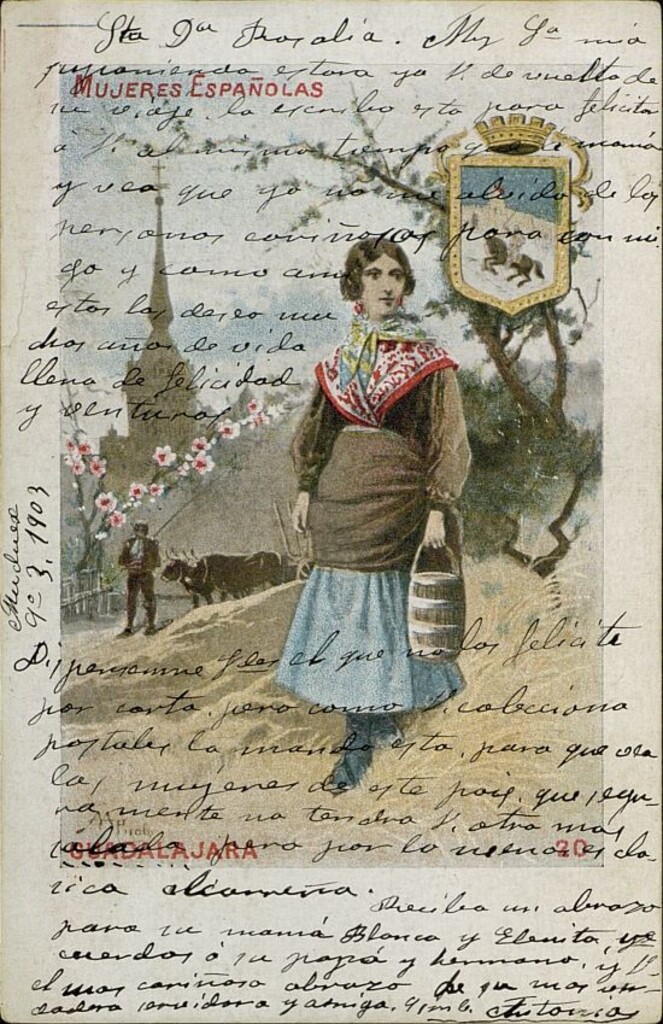 Sta Da Rosalia. Muy Sa mia
suponiendo estara ya V. de vuelta de
MUJERES ESPAÑOLAS
su viaje, la escribo esta para felicitar
á V. al mismo tiempo que a mamá
y vea que yo no me olvido de las
personas cariñosas para conmi
go y como am
estas las deseo mu
chos años de vida
llena de felicidad
y venturas
9-3-1903
Dispensenme Sdes el que no las felicite
por carta, pero como V. colecciona
postales la mando esta, para que vea
las mujeres de este pais, que, segu
ramente no tendra V. otra mas
salada pero por lo menos es cla
GUADALAJARA
20
rica
Reciba un abrazo
para su mamá Blanca y Elenita, re
cuerdos á su papá y hermano, y V.
el mas cariñoso abrazo de su mas ver
dadera servidora y amiga. q.s.m.b. Antonia